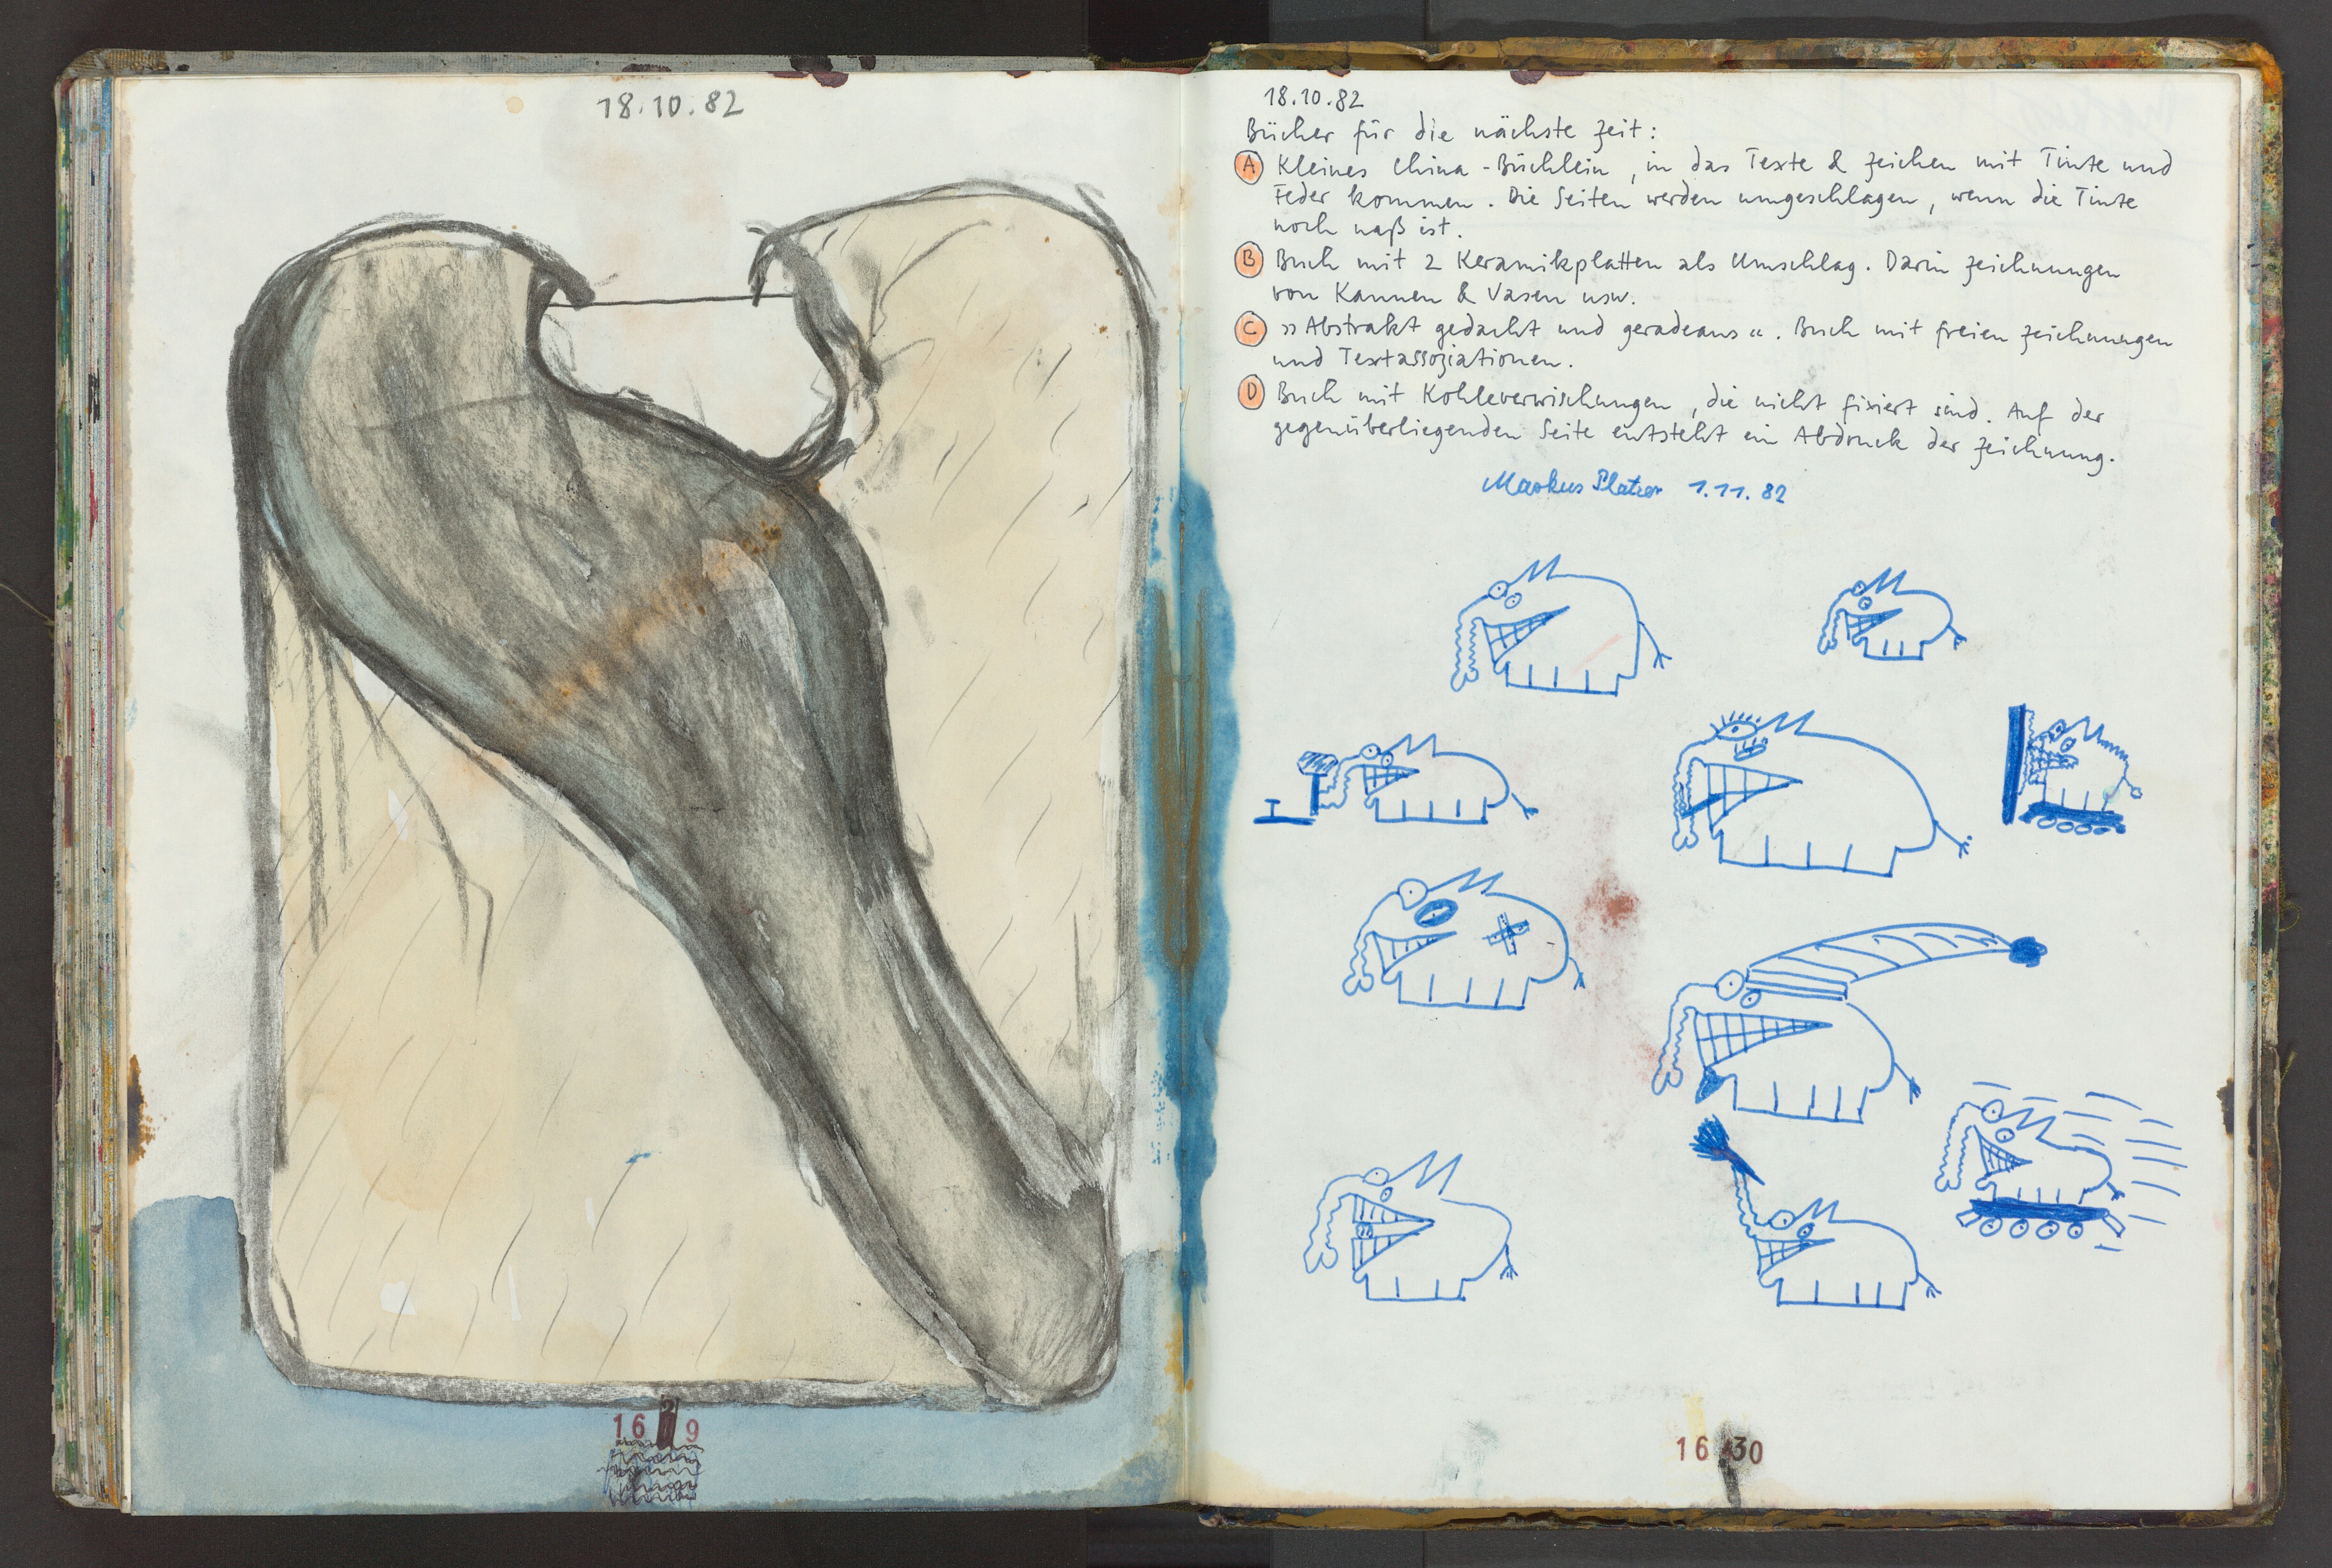 18.10.82
16 2 9
18.10.82
Bücher für die nächste Zeit:
A Kleines China-Büchlein, in das Texte & Zeichen mit Tinte und
Feder kommen. Die Seiten werden umgeschlagen, wenn die Tinte
noch naß ist.
B Buch mit 2 Keramikplatten als Umschlag. Darin Zeichnungen
von Kannen & Vasen usw.
C »Abstrakt gedacht und geradeaus«. Buch mit freien Zeichnungen
und Textassoziationen.
D Buch mit Kohleverwischungen, die nicht fixiert sind. Auf der
gegenüberliegenden Seite entsteht ein Abdruck der Zeichnung.
Markus Platzer 1.11.82
16 30